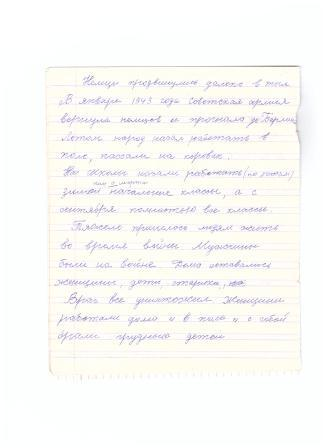 Немцы продвинулись далеко в тыл
В январе 1943 года советская армия
вернула немцов и прогнала до Берлина
Потом народ начал работать в
поле, пахали на коровах.
Но школи начали работать (не
зимой начальные классы, а с
сентября все классы.
Тяжело пришлось людям жить
во время войны Мужчины
были на войне. Дома оставались
женщины, дети, старики,
Враг все уничтожил женщины
работали дома и в поле и с собой
брали грудного дитя